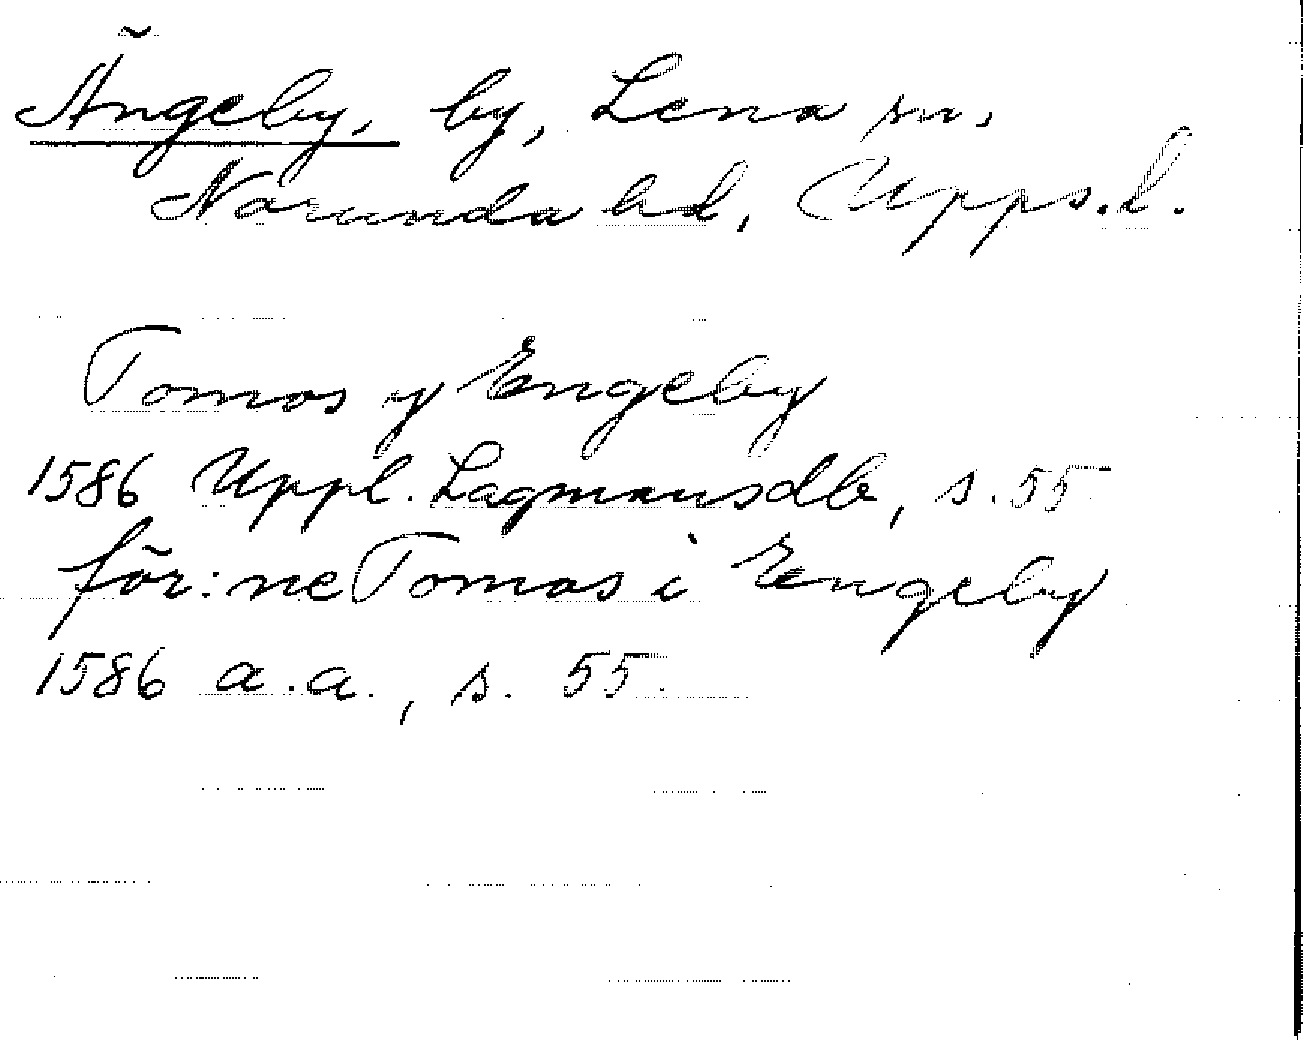 Ängeby, by, Lena sn,
Norunda hd, Upps.l.
Tomos y Engeby
1586 Uppl. Lagmansdb, s. 55
för:ne Tomas i Engeby
1586 a.a., s. 55.